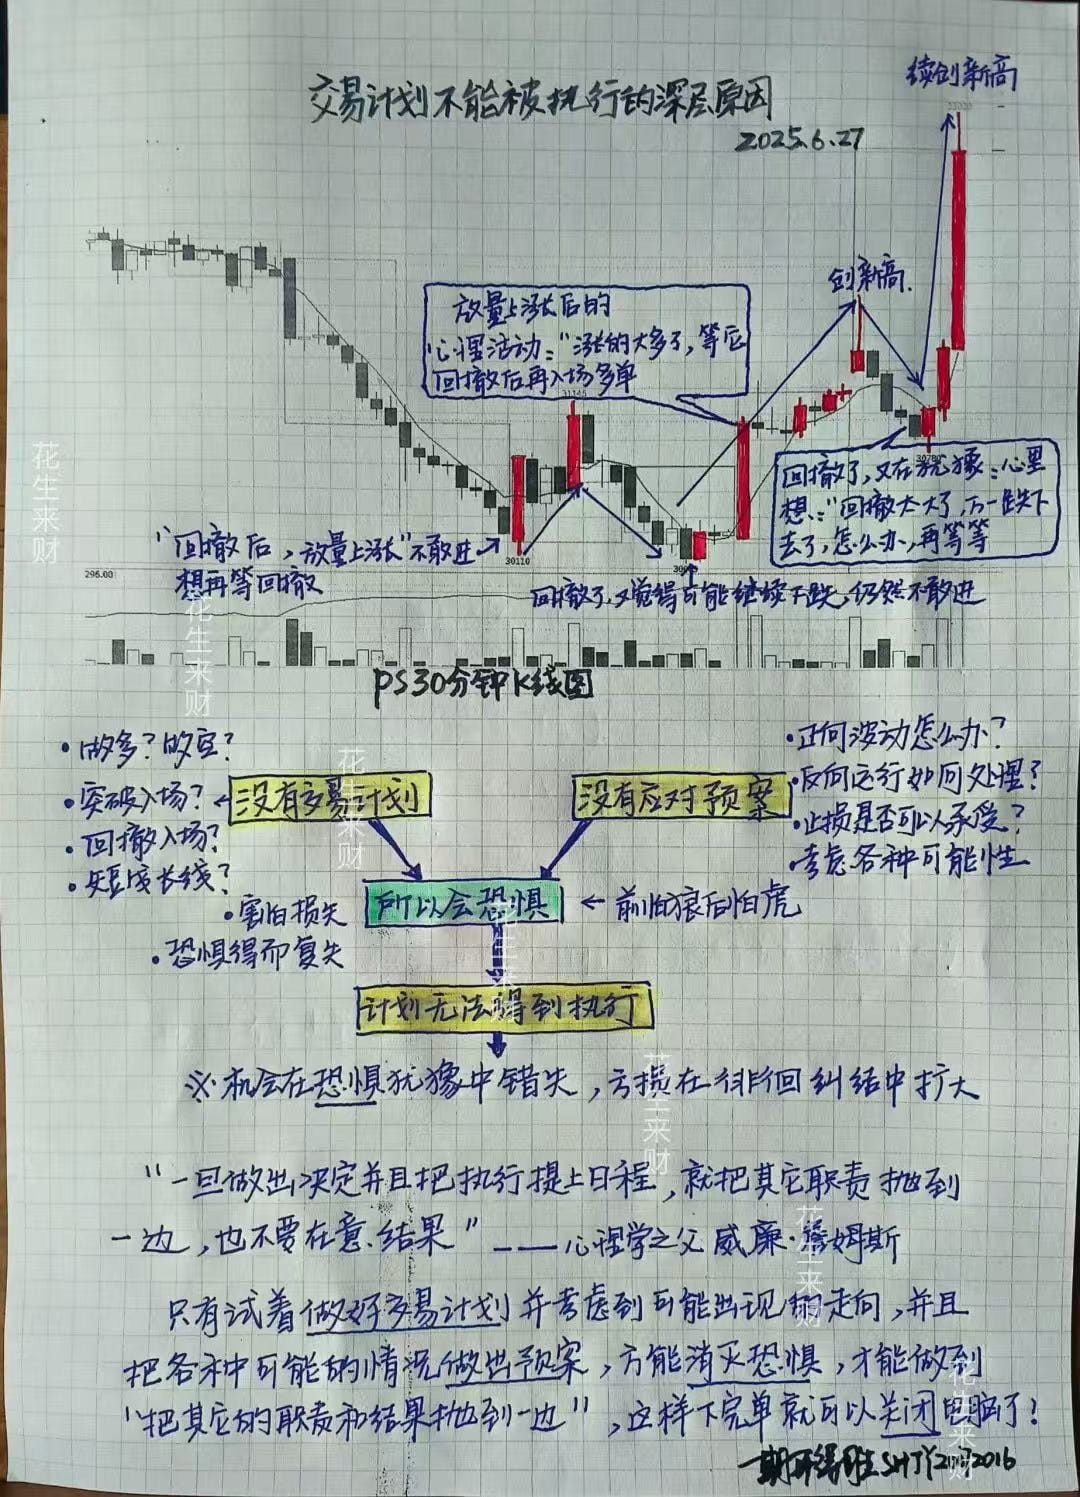 续创新高
33020
交易计划不能被执行的深层原因
2025.6.27
创新高.
放量上涨后的
心理活动:“涨的太多了,等后
回撤后再入场多单
31145
30780
回撤了,又在犹豫:心里
想:“回撤太大了,万一跌下
去了,怎么办,再等等
“回撤后,放量上涨”不敢进
想再等回撤
30110
296.00
回撤了,又觉得可能继续下跌,仍然不敢进
PS30分钟K线图
·做多?做空?
·突破入场?
·回撤入场?
·短或长线?
没有交易计划
没有应对预案
·正向波动怎么办?
·反向运行如何处理?
·止损是否可以承受?
·考虑各种可能性
所以会恐惧
←前怕狼后怕虎
·害怕损失
·恐惧得而复失
计划无法得到执行
※机会在恐惧犹豫中错失,亏损在徘徊纠结中扩大
“一旦做出决定并且把执行提上日程,就把其它职责抛到
一边,也不要在意.结果”——心理学之父威廉·詹姆斯
只有试着做好交易计划并考虑到可能出现的走向,并且
把各种可能的情况做出预案,方能消灭恐惧,才能做到
“把其它的职责和结果抛到一边”,这样下完单就可以关闭电脑了!
花生来财
花生来财
花生来财
花生来财
花生来财
花生来财
花生来财